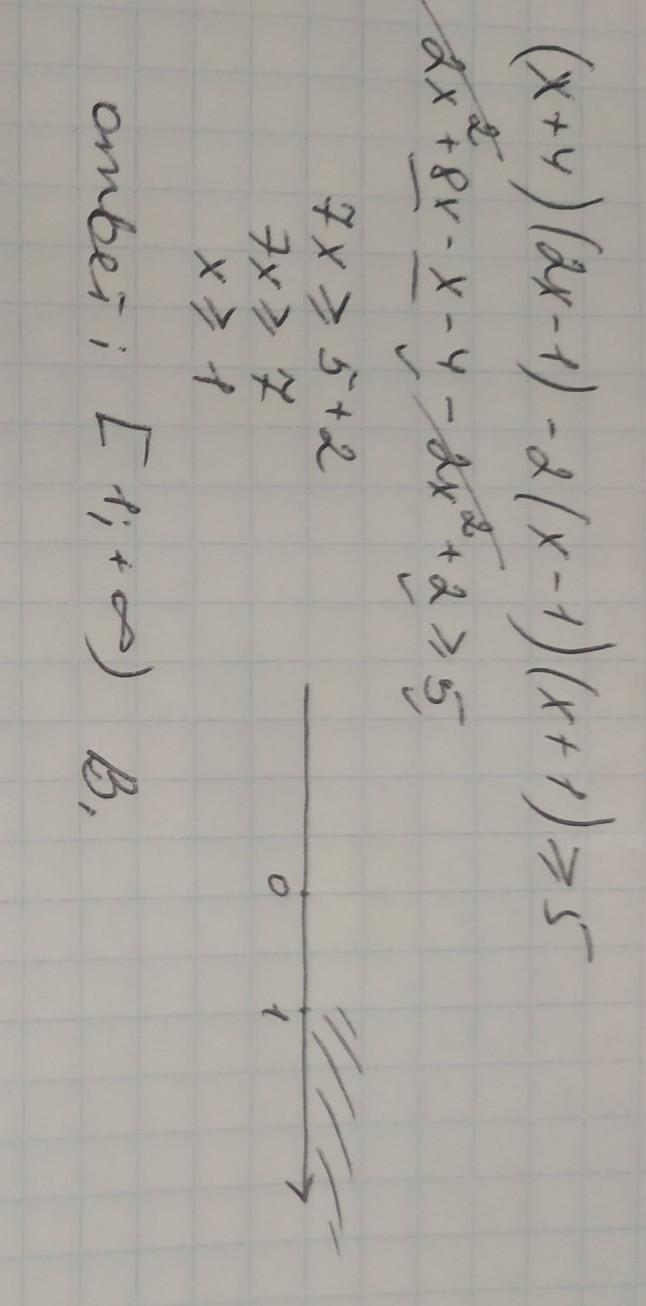 (x+4)(2x-1)-2(x-1)(x+1)≥5
2x²+8x-x-4-2x²+2≥5
7x≥5+2
7x≥7
x≥1
0 1
ответ: [1;+∞) В.